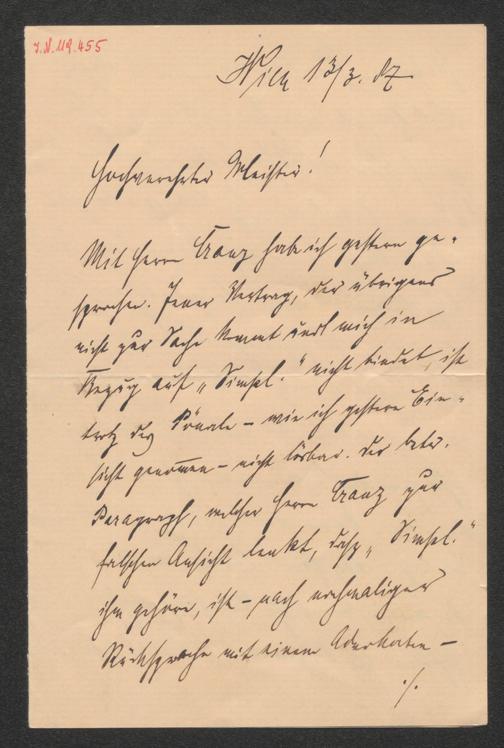 I.N. 119.455
Wien 13/3. 87
Hochverehrter Meister!
Mit Herrn Cranz habe ich gestern ge-
sprochen. Jener Vertrag, der übrigens
nicht zur Sache kommt und mich in
Bezug auf „Simpl." nicht bindet, ist
trotz des Pönale – wie ich gestern Ein-
sicht genommen – nicht lösbar. Der betr.
Paragraph, welcher Herrn Cranz zur
falschen Ansicht lenkt, dass „Simpl."
ihm gehöre, ist – nach nochmaliger
Rücksprache mit einem Advokaten –
./.